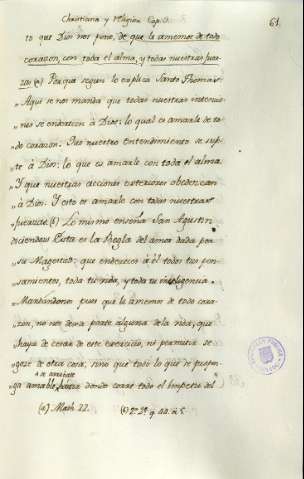 Christiana y Religion Cap.
61
to que Dios nos pone, de que le amemos de todo
corazon, con toda el alma, y todas nuestras fuer-
zas (a) Porque segun lo explica Santo Thomas
„Aqui se nos manda que todas nuestras intencio-
„nes se enderecen à Dios: lo qual es amarle de to-
„do corazon. Que nuestro Entendimiento se suje-
„te à Dios: lo que es amarle con toda el alma.
„Y que nuestras acciones exteriores obedezcan
„à Dios. Y esto es amarle con todas nuestras
„fuerzas. (b) Lo mismo enseña San Agustin
diciendo: Esta es la Regla del amor dada por
„su Magestad: que endereces à él todos tus pen-
„samientos, toda tu vida, y toda tu inteligencia.
„Mandandonos pues que le amemos de todo cora-
„zon, no nos dexa parte alguna de la vida, que
„haya de cesar de este exercicio, ni permitir se
„goze de otra cosa; sino que todo lo que se propon-
à se arrebate
„ga amable, donde corre todo el Impetu del
(a) Math. 22. (b) 2ª 2ª q. 44. a. 5.